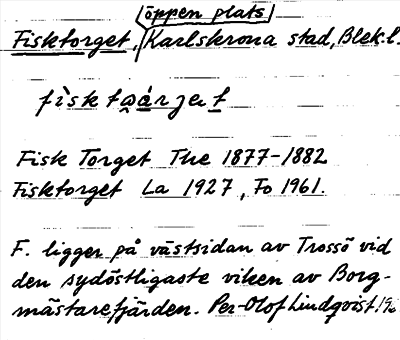 öppen plats
Fisktorget, Karlskrona stad, Blek.l.
Fisk Torget The 1877-1882
Fisktorget La 1927, Fo 1961.
F. ligger på västsidan av Trossö vid
den sydöstligaste viken av Borg-
mästarefjärden. Per-Olof Lindqvist